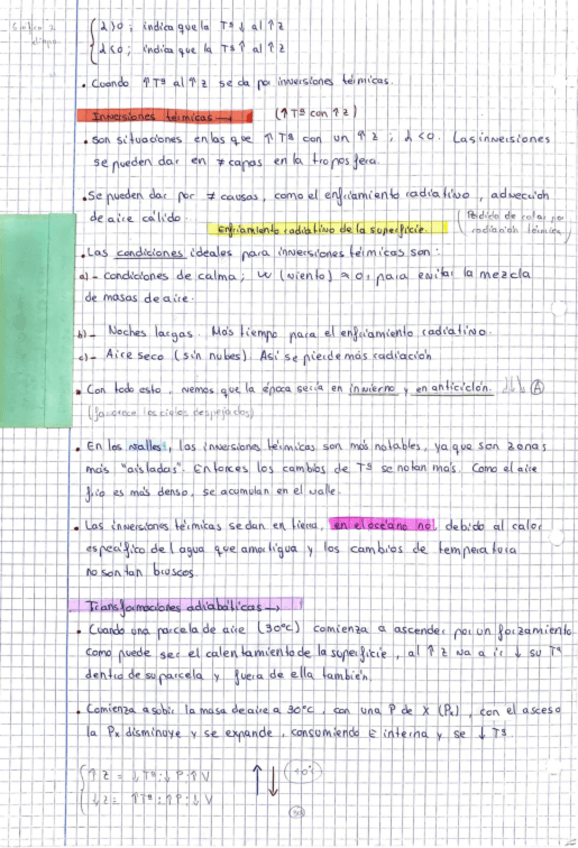 λ>0 ; indica que la Tª ↓ al ↑ z
λ<0 ; indica que la Tª ↑ al ↑ z
• Cuando ↑ Tª al ↑ z se da por inversiones térmicas.
Inversiones térmicas → (↑ Tª con ↑ z)
• Son situaciones en las que ↑ Tª con un ↑ z ; λ<0. Las inversiones
se pueden dar en ≠ capas en la troposfera.
• Se pueden dar por ≠ causas, como el enfriamiento radiativo, advección
de aire cálido.
Enfriamiento radiativo de la superficie. (Pérdida de calor por
radiación térmica)
• Las condiciones ideales para inversiones térmicas son:
a)- Condiciones de calma; w (viento) ≈ 0, para evitar la mezcla
de masas de aire.
b)- Noches largas. Más tiempo para el enfriamiento radiativo.
c)- Aire seco (sin nubes). Así se pierde más radiación
• Con todo esto, vemos que la época sería en invierno y en anticiclón. ↓↓↓ (A)
(favorece los cielos despejados)
• En los valles, las inversiones térmicas son más notables, ya que son zonas
más "aisladas". Entonces los cambios de Tª se notan más. Como el aire
frío es más denso, se acumulan en el valle.
• Las inversiones térmicas se dan en tierra, en el océano no, debido al calor
específico del agua que amortigua y los cambios de temperatura
no son tan bruscos.
Transformaciones adiabáticas →
• Cuando una parcela de aire (30ºC) comienza a ascender por un forzamiento
como puede ser el calentamiento de la superficie, al ↑ z va a ir ↓ su Tª
dentro de su parcela y fuera de ella también.
• Comienza a subir la masa de aire a 30ºC, con una P de X (Px), con el acceso
la Px disminuye y se expande, consumiendo E interna y se ↓ Tª
↑ z = ↓ Tª ; ↓ P ; ↑ V ↑↓
↓ z = ↑ Tª ; ↑ P ; ↓ V